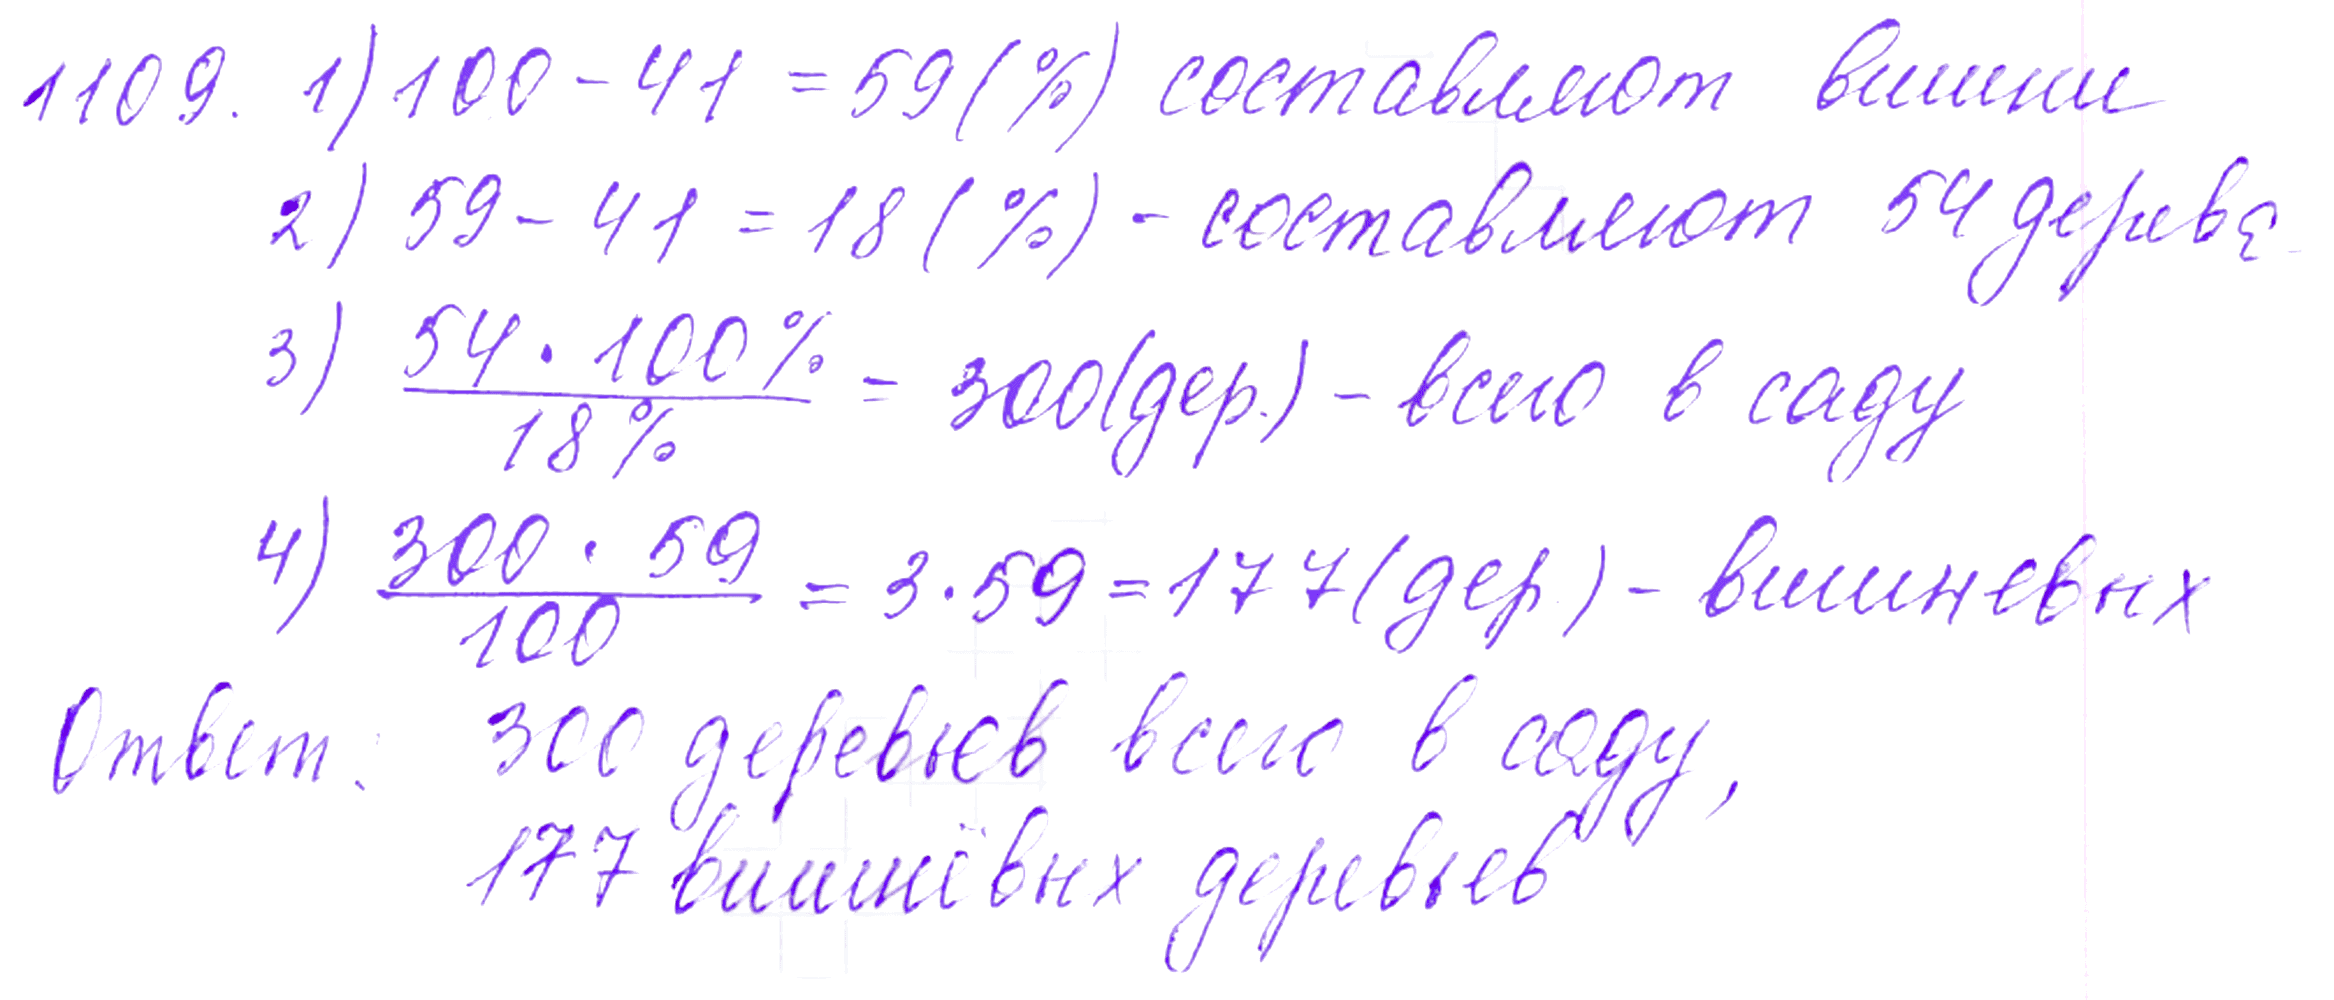 1109. 1) 100 - 41 = 59 (%) составляют вишни
2) 59 - 41 = 18 (%) - составляют 54 дерева
3) 54 · 100% / 18% = 300 (дер.) - всего в саду
4) 300 · 59 / 100 = 3 · 59 = 177 (дер) - вишневых
Ответ: 300 деревьев всего в саду,
177 вишнёвых деревьев